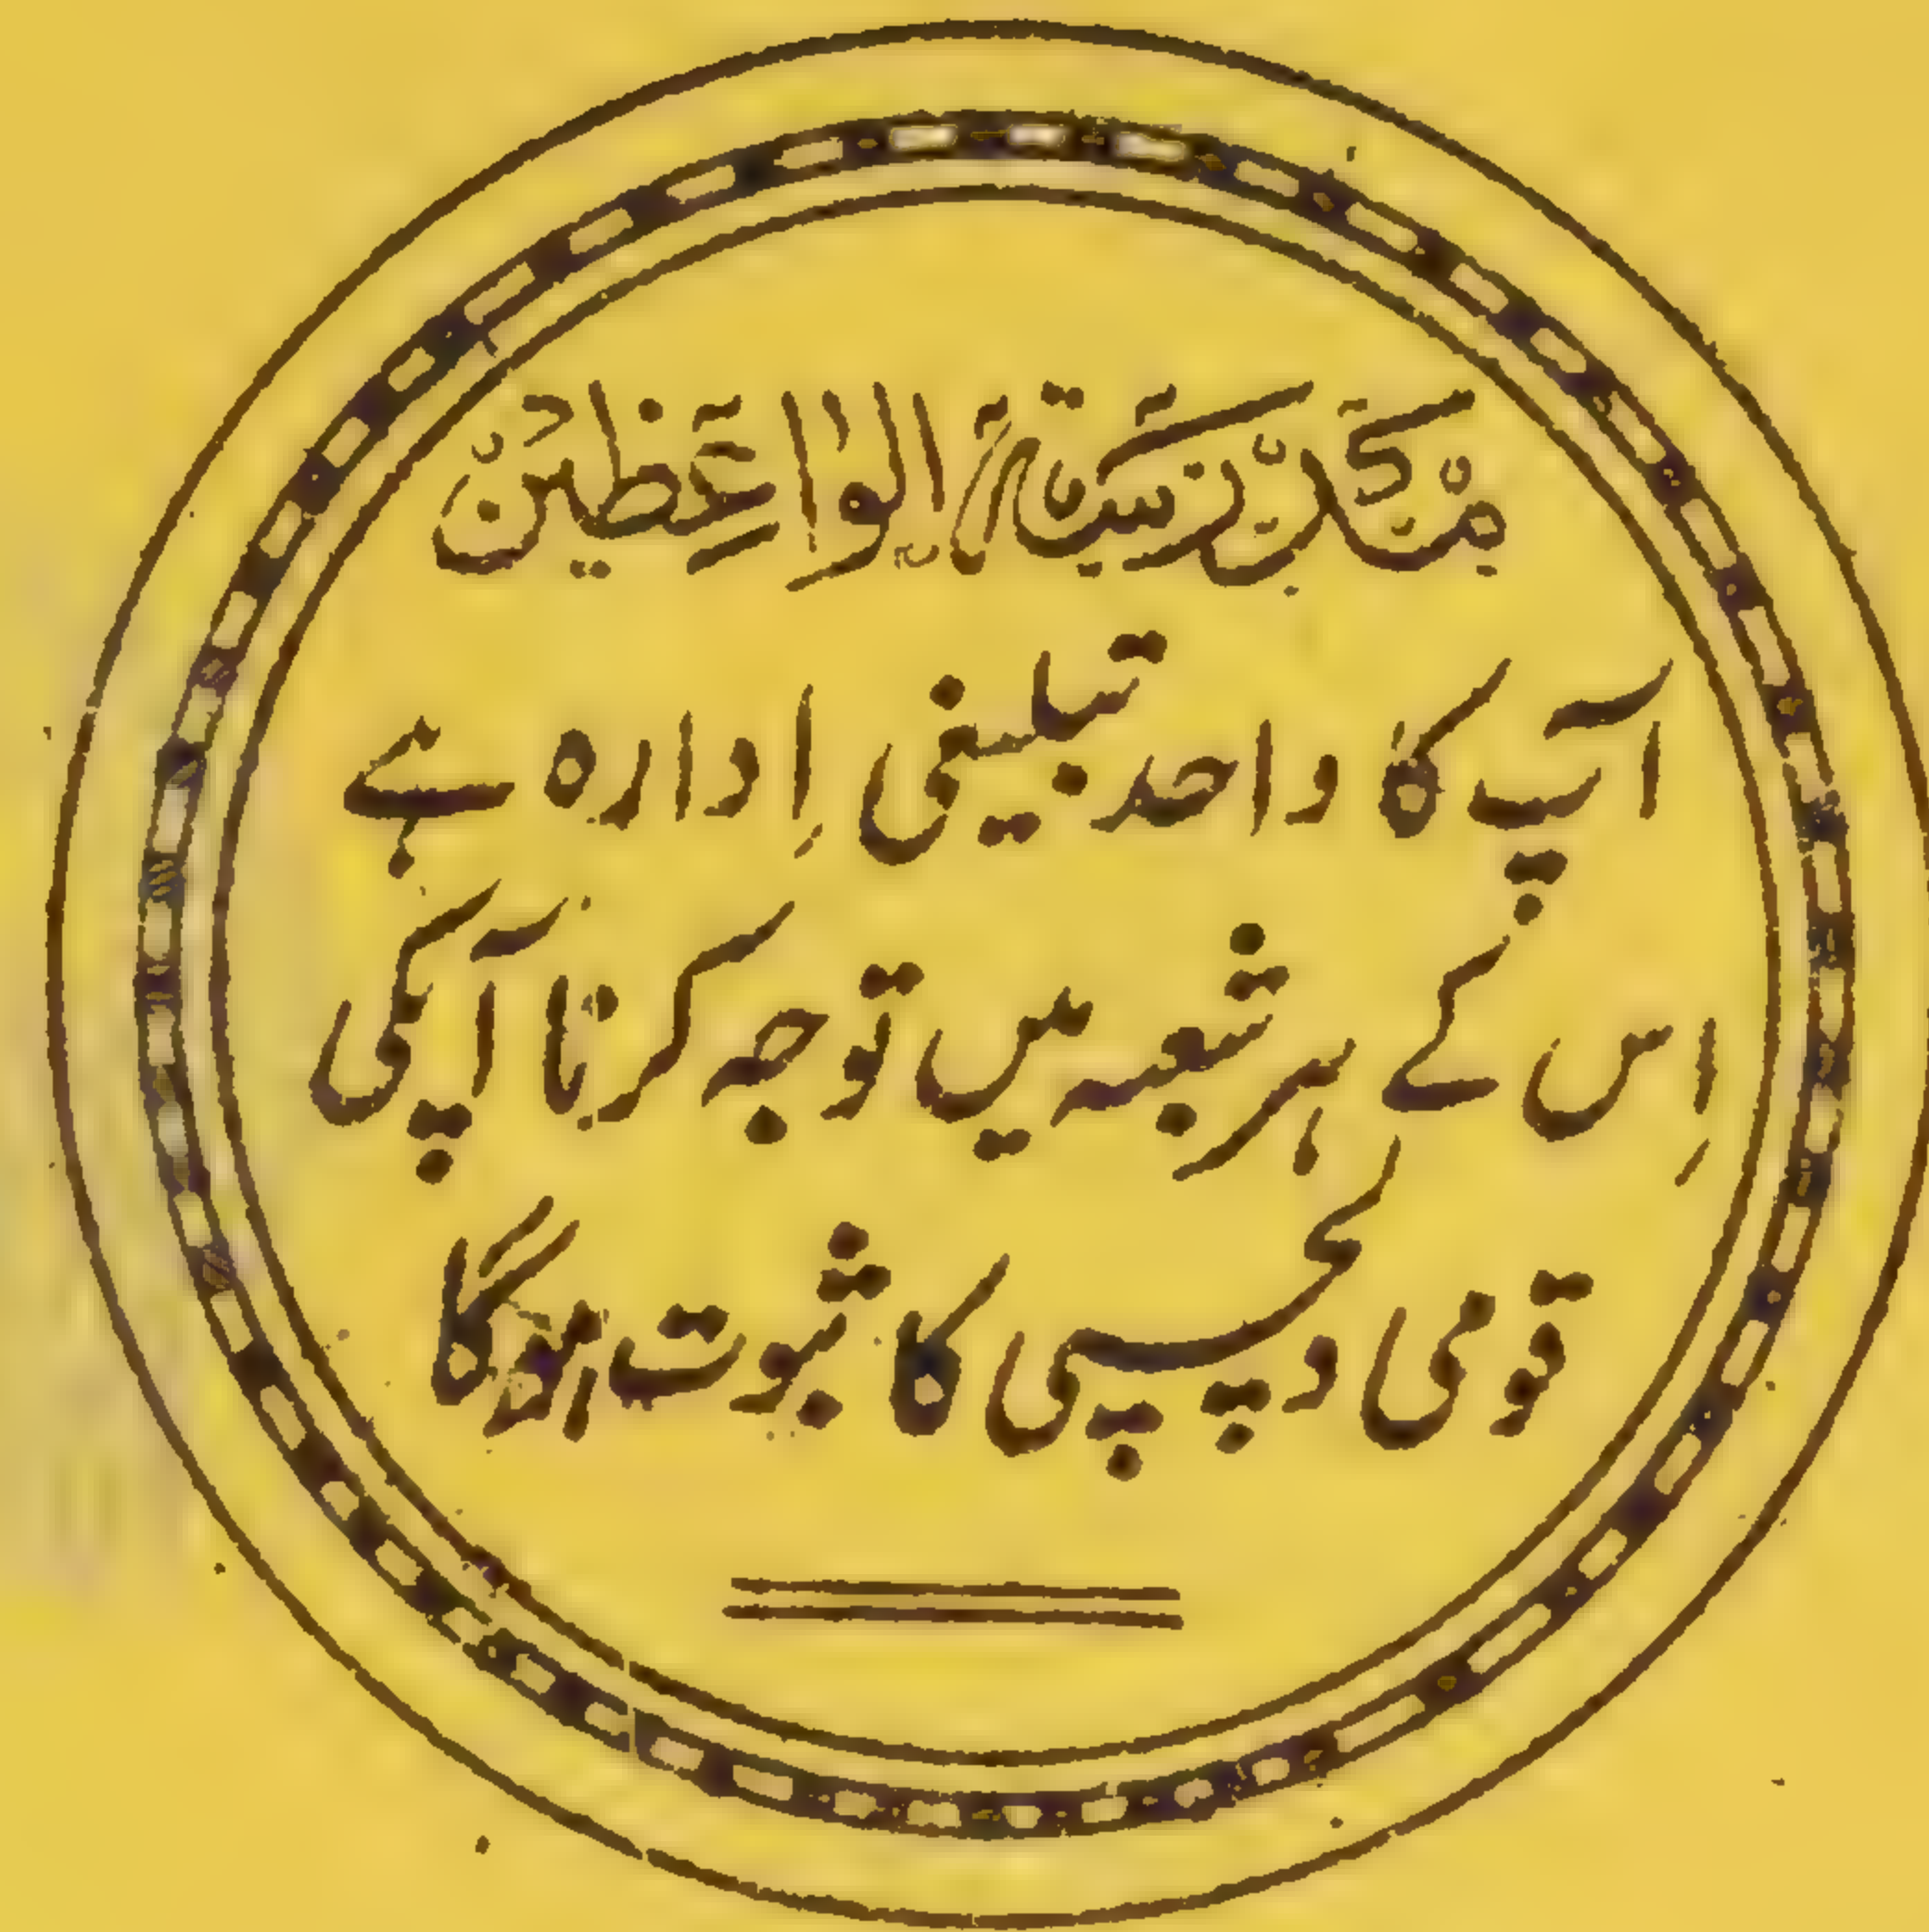 مدرسۃ الواعظین
آپ کا واحد تبلیغی اِدارہ ہے
اِس کے ہر شعبہ میں توجہ کرنا آپکی
قومی دلچسپی کا ثبوت ہوگا